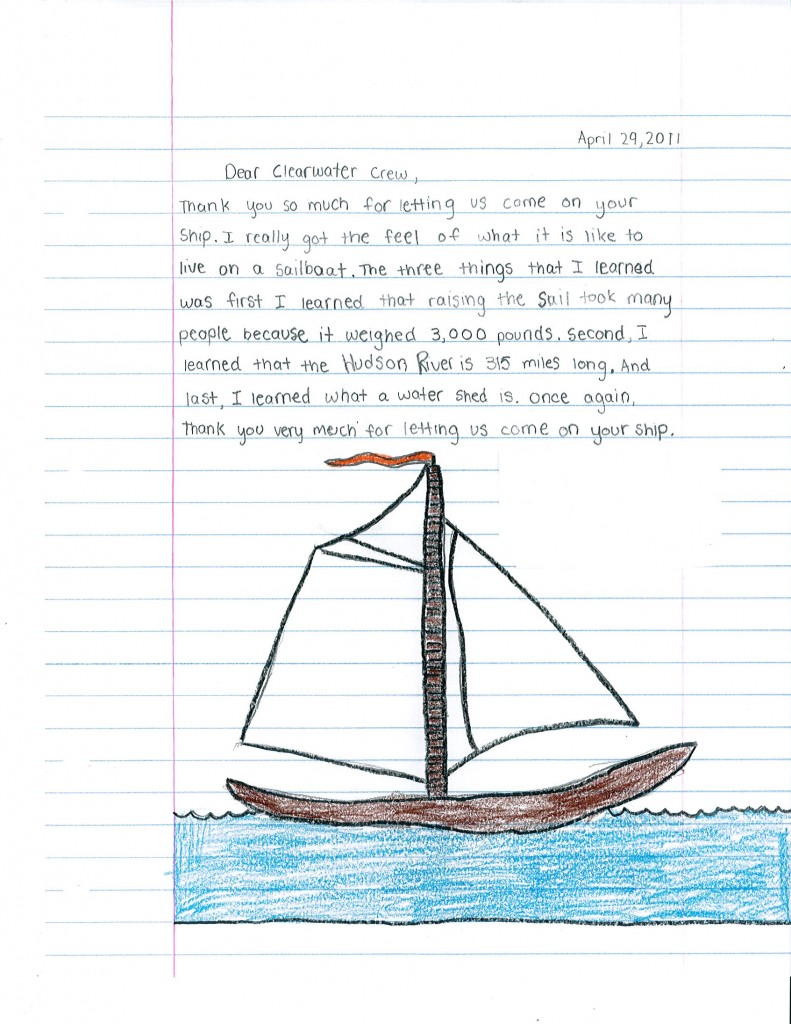 April 29, 2011
Dear Clearwater Crew,
Thank you so much for letting us come on your
Ship. I really got the feel of what it is like to
live on a sailboat. The three things that I learned
was first I learned that raising the Sail took many
people because it weighed 3,000 pounds. Second, I
learned that the Hudson River is 315 miles long. And
last, I learned what a water shed is. once again,
thank you very much for letting us come on your ship.